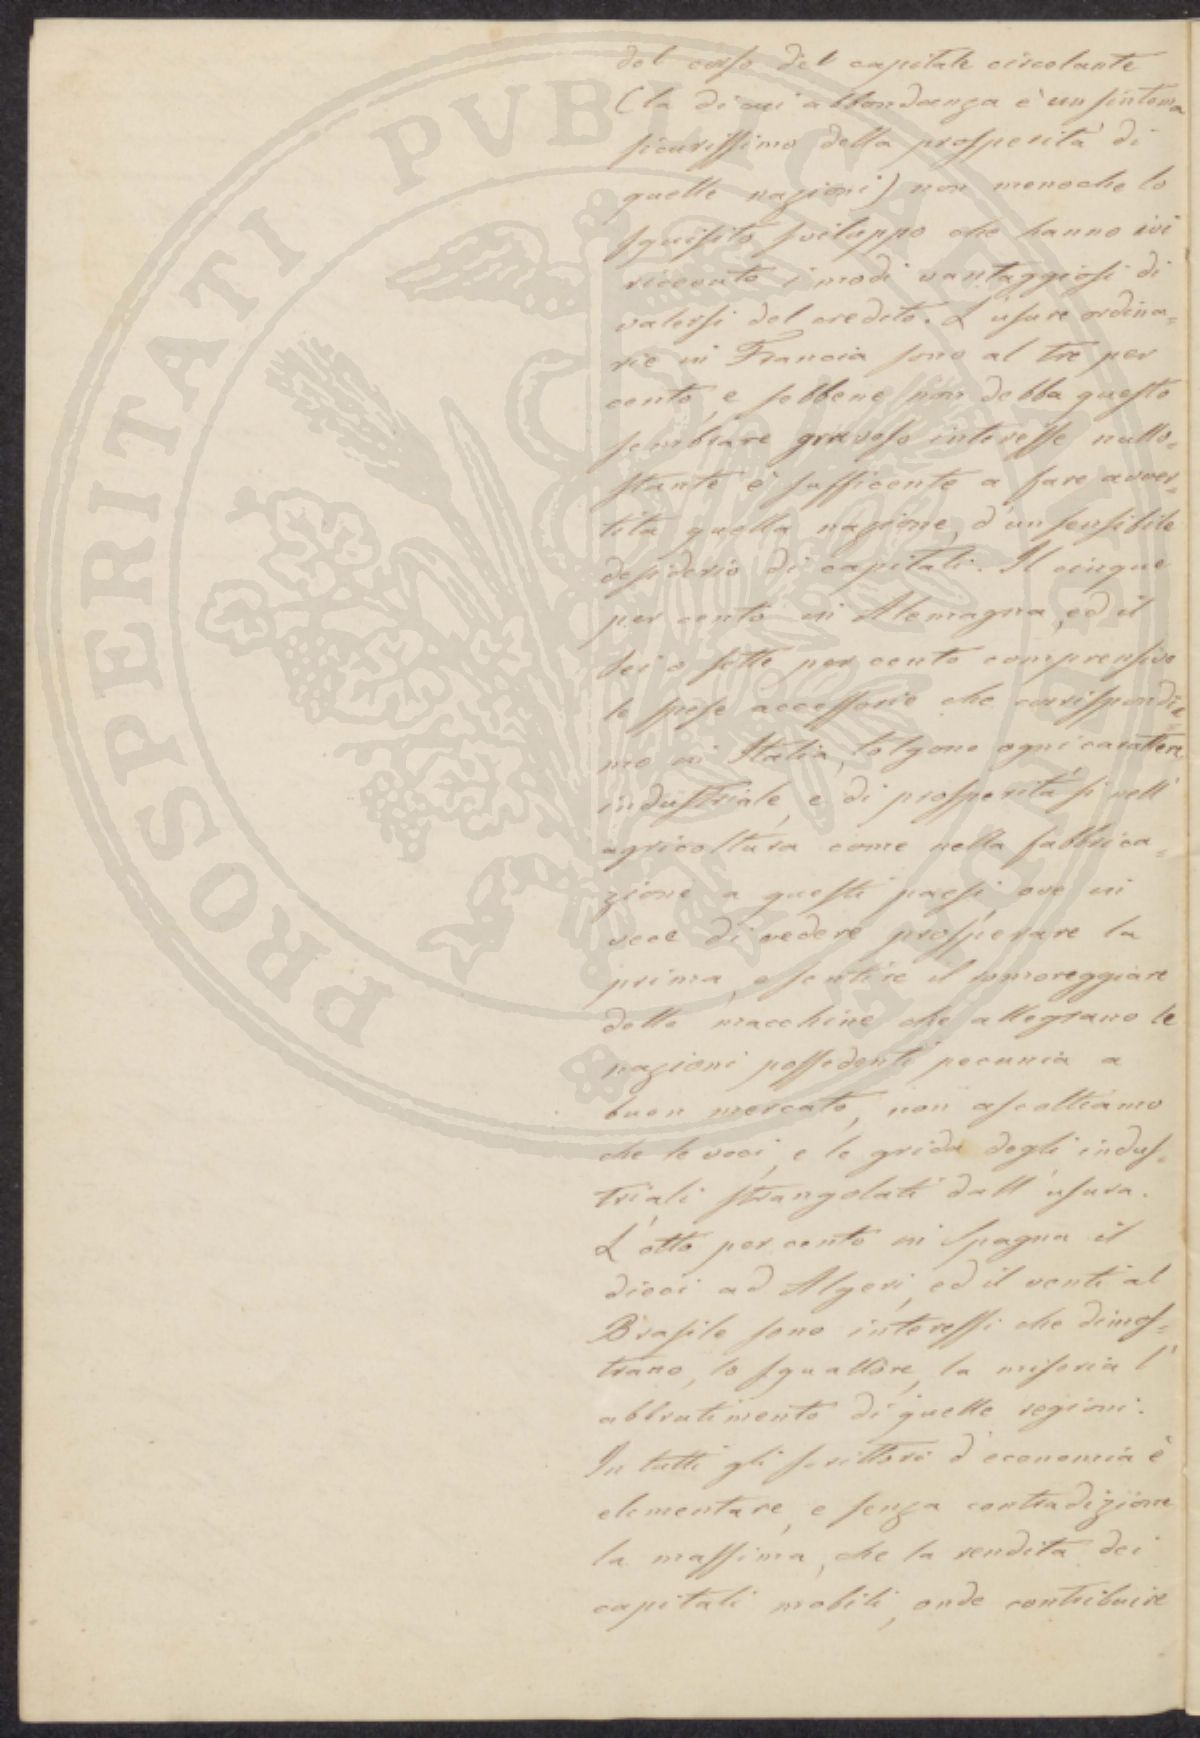 del corso del capitale circolante
(la di cui abbondanza è un sintoma
sicurissimo della prosperità di
quelle nazioni) non menoche lo
squisito sviluppo che hanno ivi
ricevuto i modi vantaggiosi di
valersi del credito. L'usure ordina=
rie in Francia sono al tre per
cento, e sebbene non debba questo
sembrare gravoso interesse nullo=
stante è sufficente a fare avver=
tita quella nazione, d'un sensibile
desiderio di capitali. Il cinque
per cento in Alemagna, ed il
sei o sette per cento comprensivo
le spese accessorie che corrispondia=
mo in Italia, tolgono ogni carattere
industriale, e di prosperità sì nell'
agricoltura come nella fabbrica=
zione a questi paesi, ove in
vece di vedere prosperare la
prima, e sentire il romoreggiare
delle macchine che allegrano le
nazioni possedenti pecunia a
buon mercato, non ascoltiamo
che le voci, e le grida degli indus=
triali strangolati dall'usura.
L'otto per cento in Spagna il
dieci ad Algeri, ed il venti al
Brasile sono interessi che dimos=
trano, lo squallore, la miseria l'
abbrutimento di quelle regioni.
In tutti gli scrittori d'economia è
elementare, e senza contradizione
la massima, che la rendita dei
capitali mobili, onde contribuire
PROSPERITATI PUBLICAE